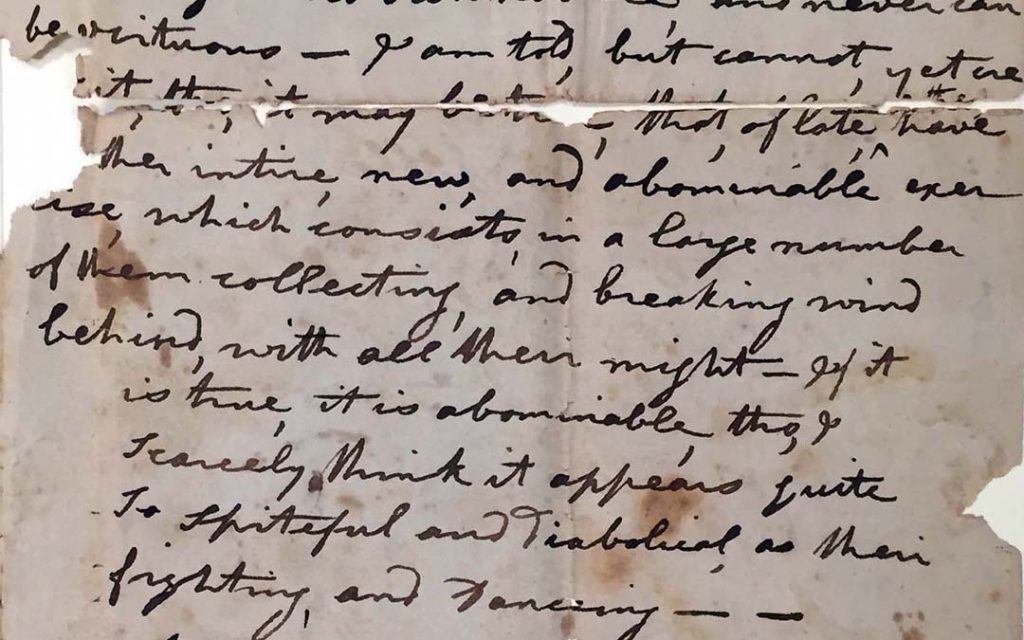 and never can
be virtuous — I am told, but cannot, yet
it, tho, it may be true, that, of late, the have
ther intire, new, and abominable exer
ise, which consists, in a large number
of them collecting, and breaking wind
behind, with all their might — If it
is true, it is abominable, tho, I
Scarcely, think it appears quite
So Spiteful and Diabolical, as their
fighting, and Dancing — —